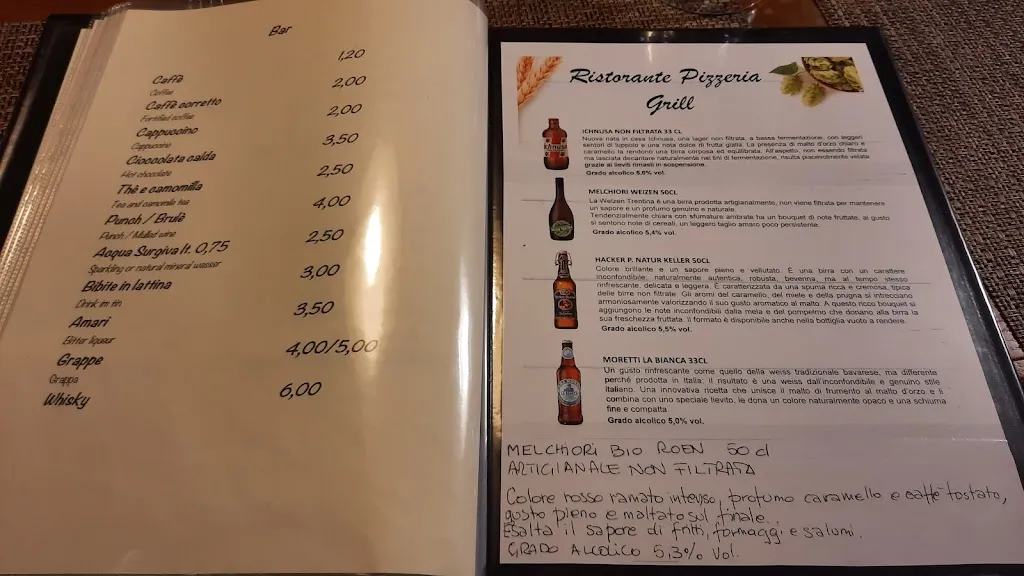 Bar
Caffè 1,20
Coffee
Caffè corretto 2,00
Fortified coffee
Cappuccino 2,00
Cappuccino
Cioccolata calda 3,50
Hot chocolate
Thè e camomilla 2,50
Tea and camomile tea
Punch / Brulè 4,00
Punch / Mulled wine
Acqua Surgiva lt. 0,75 2,50
Sparkling or natural mineral wasser
Bibite in lattina 3,00
Drink in tin
Amari 3,50
Bitter liqueur
Grappe 4,00/5,00
Grappa
Whisky 6,00
Ristorante Pizzeria
Grill
ICHNUSA NON FILTRATA 33 CL
Nuova nata in casa Ichnusa, una lager non filtrata, a bassa fermentazione, con leggeri
sentori di luppolo e una nota dolce di frutta gialla. La presenza di malto d'orzo chiaro e
caramello la rendono una birra corposa ed equilibrata. All'aspetto, non essendo filtrata
ma lasciata decantare naturalmente nei tini di fermentazione, risulta piacevolmente velata
grazie ai lieviti rimasti in sospensione.
Grado alcolico 5,0% vol.
MELCHIORI WEIZEN 50CL
La Weizen Trentina è una birra prodotta artigianalmente, non viene filtrata per mantenere
un sapore e un profumo genuino e naturale.
Tendenzialmente chiara con sfumature ambrata ha un bouquet di note fruttate, al gusto
si sentono note di cereali, un leggero taglio amaro poco persistente.
Grado alcolico 5,4% vol.
HACKER P. NATUR KELLER 50CL
Colore brillante e un sapore pieno e vellutato. È una birra con un carattere
inconfondibile: naturalmente autentica, robusta, beverina, ma al tempo stesso
rinfrescante, delicata e leggera. È caratterizzata da una spuma ricca e cremosa, tipica
delle birre non filtrate. Gli aromi del caramello, del miele e della prugna si intrecciano
armoniosamente valorizzando il suo gusto aromatico al malto. A questo ricco bouquet si
aggiungono le note inconfondibili dalla mela e del pompelmo che donano alla birra la
sua freschezza fruttata. Il formato è disponibile anche nella bottiglia vuoto a rendere.
Grado alcolico 5,5% vol.
MORETTI LA BIANCA 33CL
Un gusto rinfrescante come quello della weiss tradizionale bavarese, ma differente
perché prodotta in Italia: il risultato è una weiss dall'inconfondibile e genuino stile
italiano. Una innovativa ricetta che unisce il malto di frumento al malto d'orzo e li
combina con uno speciale lievito, le dona un colore naturalmente opaco e una schiuma
fine e compatta.
Grado alcolico 5,0% vol.
MELCHIORI BIO ROEN 50 cl
ARTIGIANALE NON FILTRATA
Colore rosso ramato intenso, profumo caramello e caffè tostato,
gusto pieno e maltato sul finale.
Esalta il sapore di fritti, formaggi e salumi.
GRADO ALCOLICO 5,3% Vol.